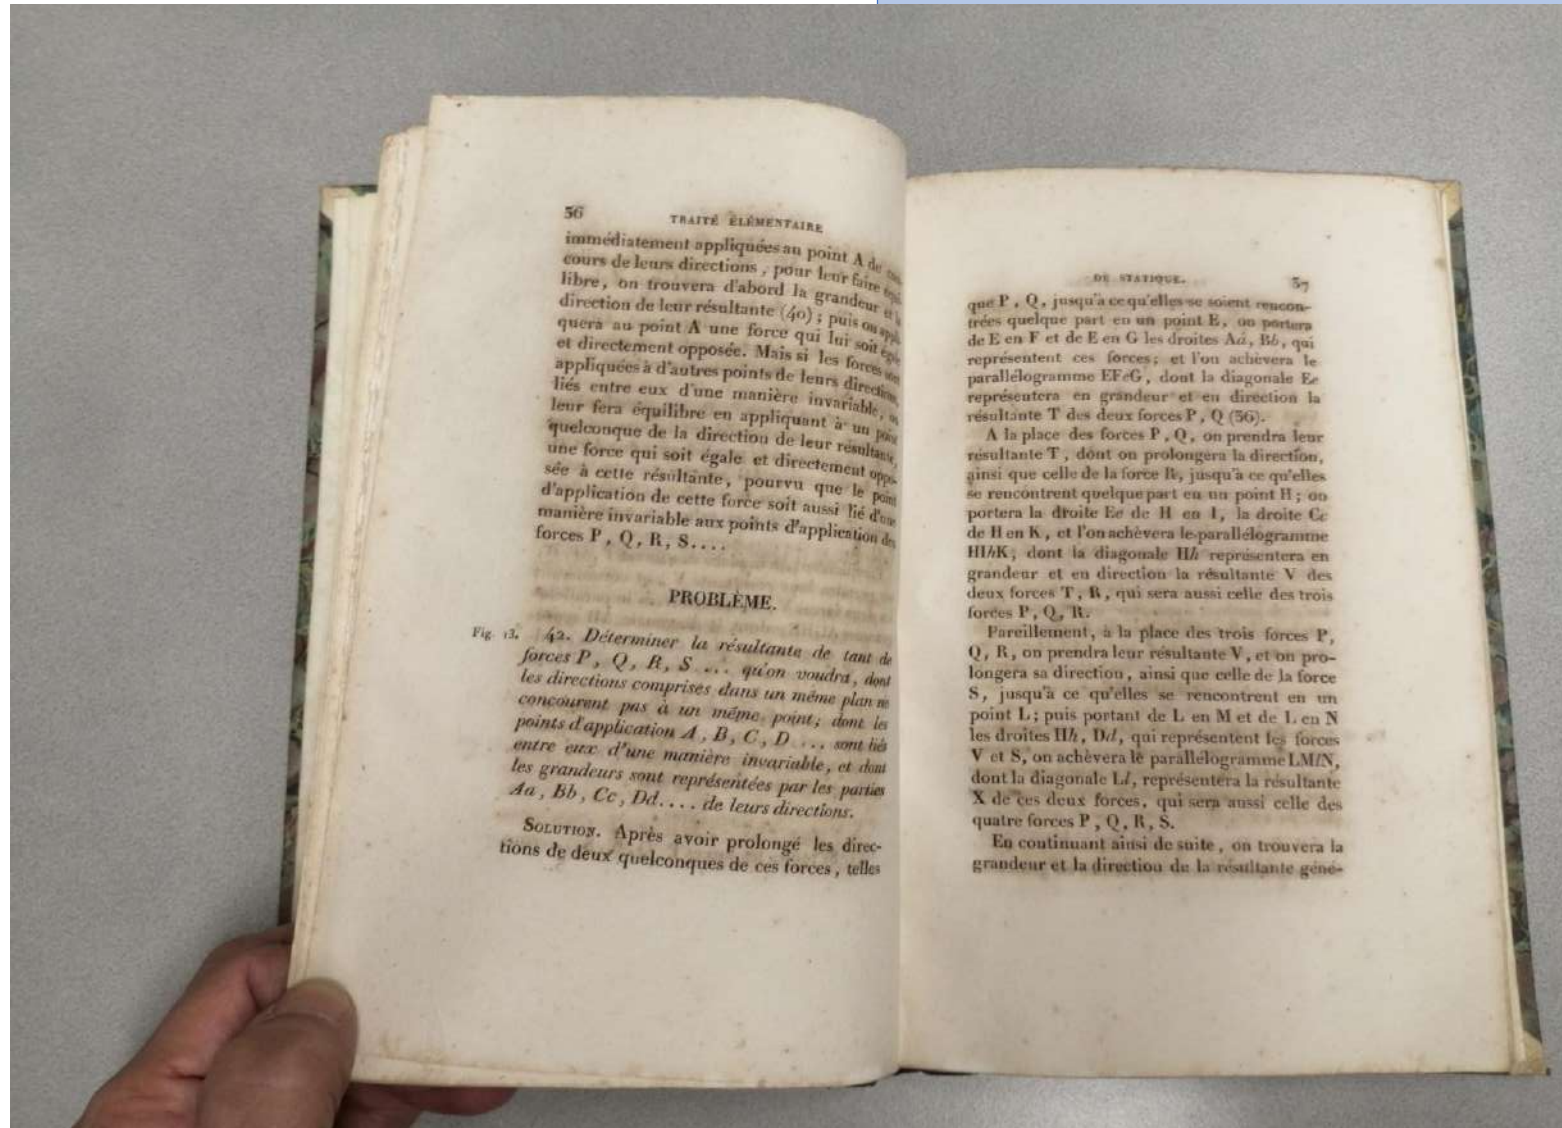 36
TRAITÉ ÉLÉMENTAIRE
immédiatement appliquées au point A de con-
cours de leurs directions, pour leur faire équi-
libre, on trouvera d'abord la grandeur et la
direction de leur résultante (40); puis on appli-
quera au point A une force qui lui soit égale
et directement opposée. Mais si les forces sont
appliquées à d'autres points de leurs directions,
liés entre eux d'une manière invariable, on
leur fera équilibre en appliquant à un point
quelconque de la direction de leur résultante,
une force qui soit égale et directement oppo-
sée à cette résultante, pourvu que le point
d'application de cette force soit aussi lié d'une
manière invariable aux points d'application des
forces P, Q, R, S....
PROBLÈME.
Fig. 13. 42. Déterminer la résultante de tant de
forces P, Q, R, S ... qu'on voudra, dont
les directions comprises dans un même plan ne
concourent pas à un même point; dont les
points d'application A, B, C, D ... sont liés
entre eux d'une manière invariable, et dont
les grandeurs sont représentées par les parties
Aa, Bb, Cc, Dd.... de leurs directions.
SOLUTION. Après avoir prolongé les direc-
tions de deux quelconques de ces forces, telles
DE STATIQUE.
37
que P, Q, jusqu'à ce qu'elles se soient rencon-
trées quelque part en un point E, on portera
de E en F et de E en G les droites Aa, Bb, qui
représentent ces forces; et l'on achèvera le
parallélogramme EFeG, dont la diagonale Ee
représentera en grandeur et en direction la
résultante T des deux forces P, Q (36).
A la place des forces P, Q, on prendra leur
résultante T, dont on prolongera la direction,
ainsi que celle de la force R, jusqu'à ce qu'elles
se rencontrent quelque part en un point H; on
portera la droite Ee de H en I, la droite Cc
de H en K, et l'on achèvera le parallélogramme
HIhK, dont la diagonale Hh représentera en
grandeur et en direction la résultante V des
deux forces T, R, qui sera aussi celle des trois
forces P, Q, R.
Pareillement, à la place des trois forces P,
Q, R, on prendra leur résultante V, et on pro-
longera sa direction, ainsi que celle de la force
S, jusqu'à ce qu'elles se rencontrent en un
point L; puis portant de L en M et de L en N
les droites Hh, Dd, qui représentent les forces
V et S, on achèvera le parallélogramme LMlN,
dont la diagonale Ll, représentera la résultante
X de ces deux forces, qui sera aussi celle des
quatre forces P, Q, R, S.
En continuant ainsi de suite, on trouvera la
grandeur et la direction de la résultante géné-